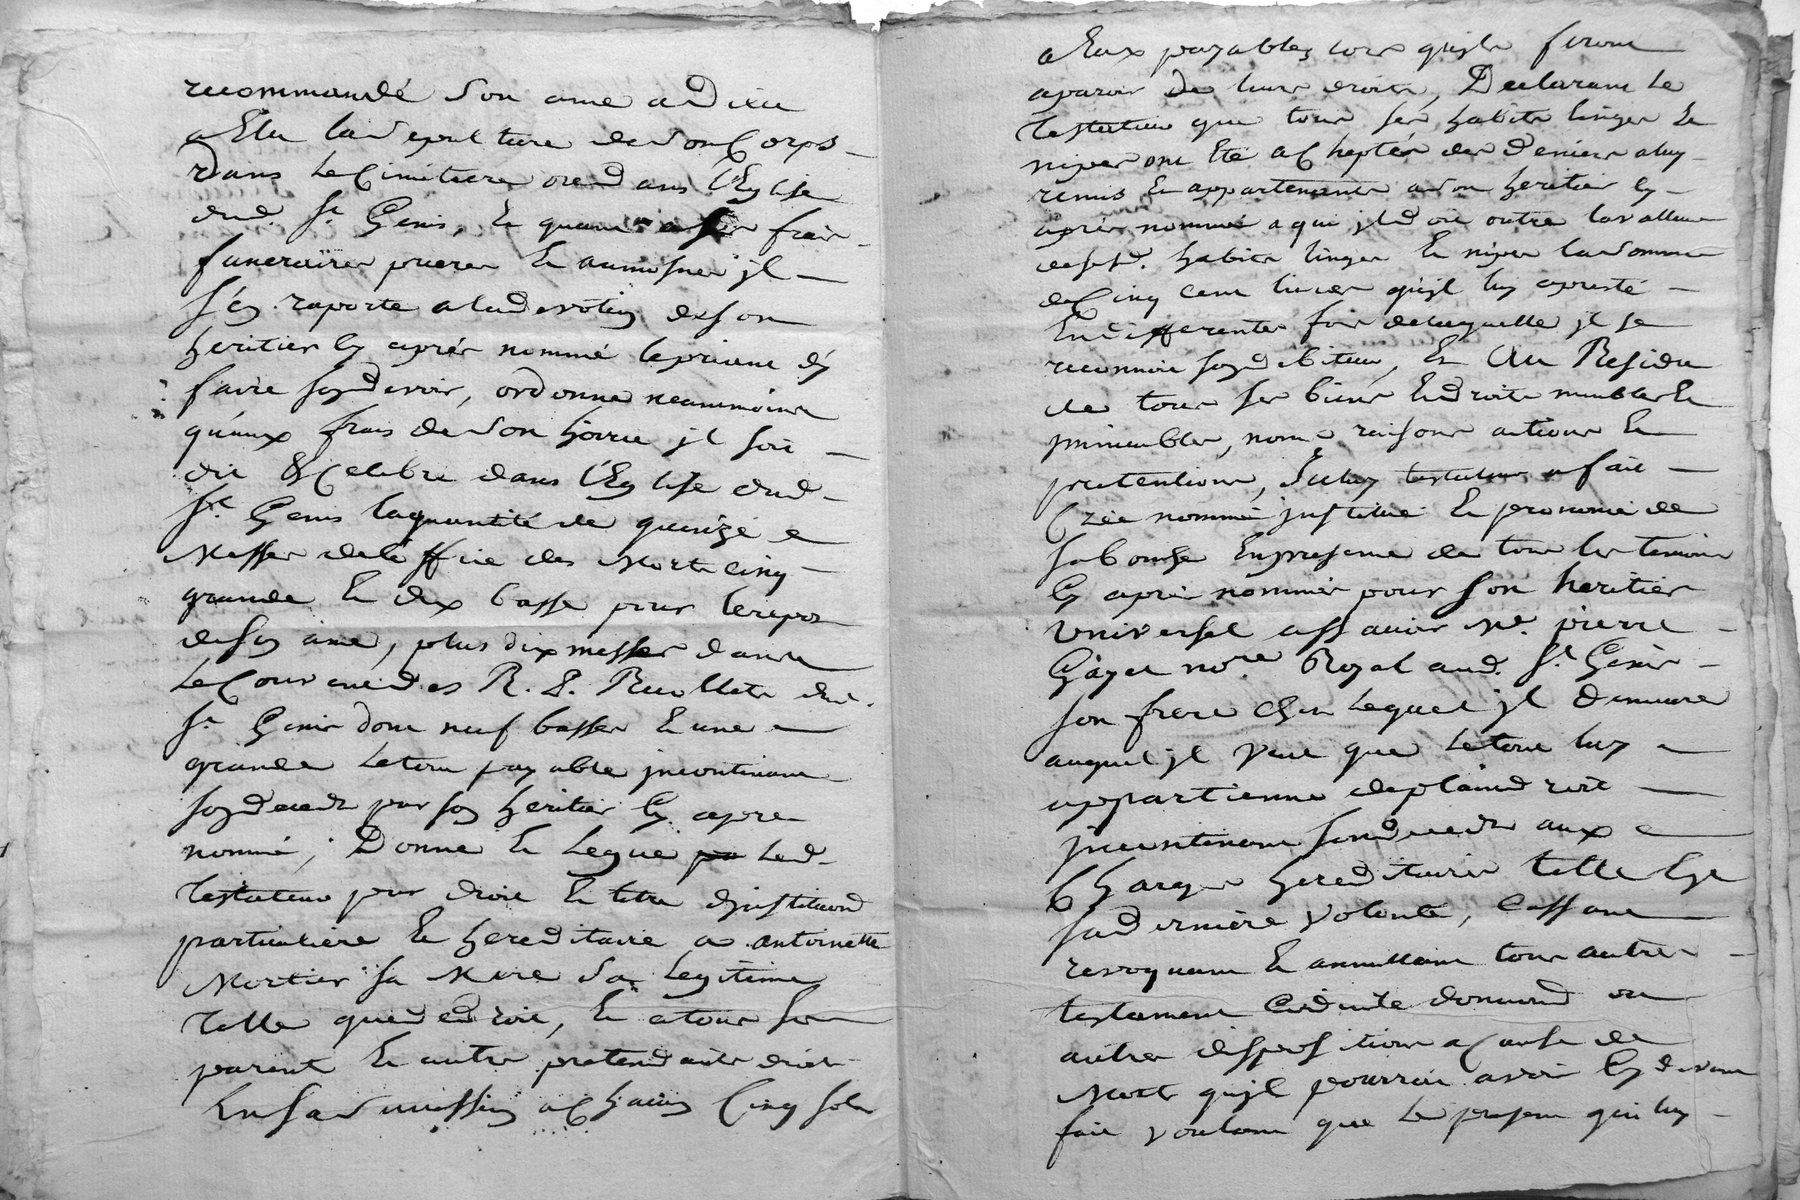 recommandé son ame a Dieu
a Elu la sepulture de son Corps
dans le Cimitiere ou dans l'Eglise
dud. St Genis, Et quant a ses frais
funeraires prieres Et aumosnes jl
s'en raporte a la devotion de son
heritier Cy aprés nommé le priant d'en
faire son devoir, ordonne neanmoins
qu'aux frais de son hoirie jl soit
dit & Celebré dans l'Eglise dud.
St Genis la quantité de quinze
Messes de l'office des Morts cinq
grandes Et dix basses pour le repos
de son ame, plus dix messes dans
le Couvent des R. P. Recollets dud.
St Genis dont neuf basses Et une
grande le tout payable jncontinant
son deceds par son heritier Cy apres
nommé; Donne Et legue led.
Testateur par droit Et titre d'jnstitution
particuliere Et hereditaire a antoinette
Mortier sa Mere sa legitime
telle que de droit, Et a tous ses
parents Et autres pretendants droit
En sa succession a Chacun Cinq sols
a Eux payables lors qu'jls feront
aparoir de leurs droits, Declarant le
Testateur que tous ses habits linges Et
nipes ont Eté acheptés des deniers a luy
remis Et appartenants a son heritier Cy
aprés nommé a qui jl doit outre la valleur
de sesd. habits linges Et nipes la somme
de Cinq cent livres qu'jl luy a presté
En differentes fois de laquelle jl se
reconnoit son debiteur, Et Au Residu
de tous ses biens Et droits meubles Et
jmmeubles, noms raisons actions Et
pretentions, Jceluy testateur a fait
Créé nommé jnstitué Et prononcé de
sa bouche En presence de tous les temoins
Cy aprés nommés pour son heritier
Universel assavoir Me. pierre
Gayet nore. Royal aud. St Genis
son frere Chez lequel jl demeure
auquel jl veut que le tout luy
appartienne de plain droit
jncontinant son deceds aux
Charges hereditaires telle Est
sa derniere volonté, Cassant
revoquant Et annullant tous autres
testament Codicile donnation ou
autres dispositions a Cause de
Mort qu'jl pourroit avoir Cy devant
fait voulant que le present qui luy